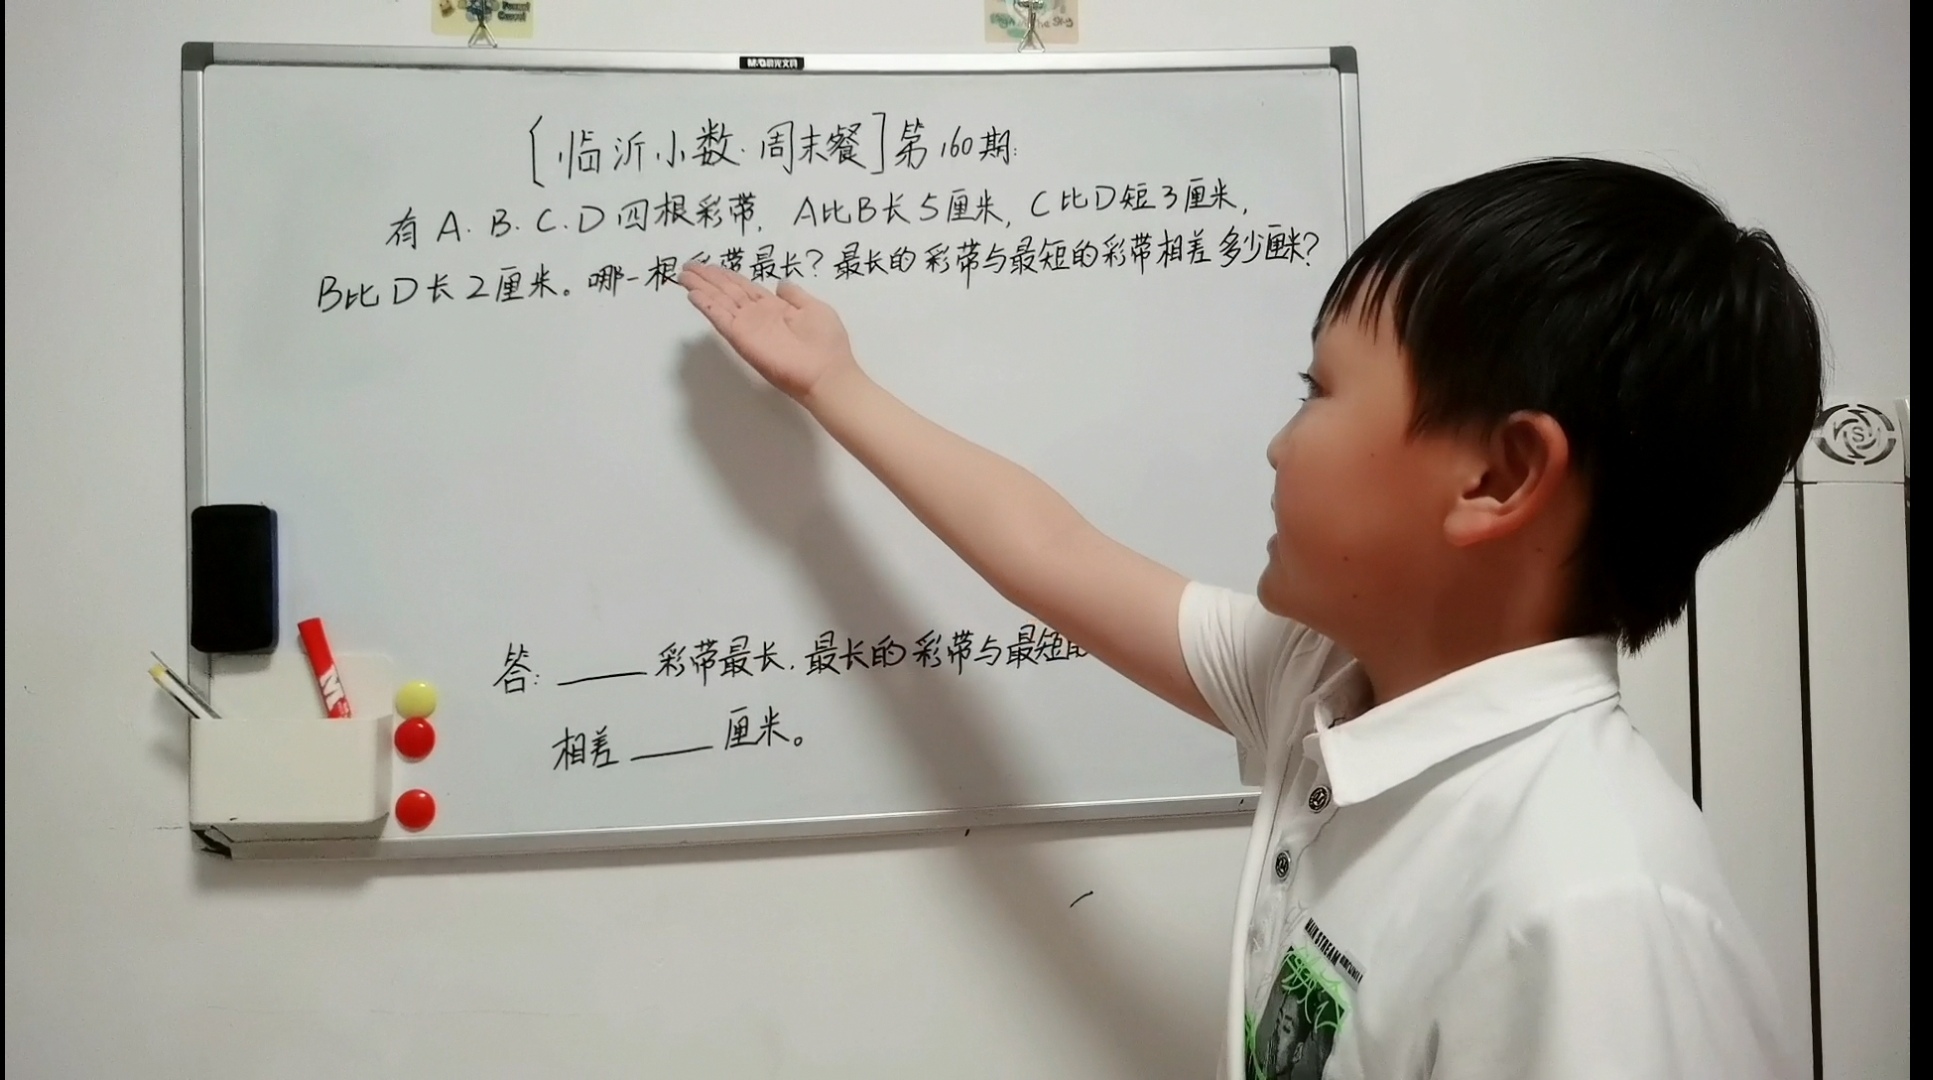 Sky
M&G晨光文具
[临沂小数·周末餐]第160期:
有A.B.C.D四根彩带,A比B长5厘米,C比D短3厘米,
B比D长2厘米。哪一根彩带最长?最长的彩带与最短的彩带相差多少厘米?
答:____彩带最长.最长的彩带与最短的
相差____厘米。
M
S
MAIN STREAM